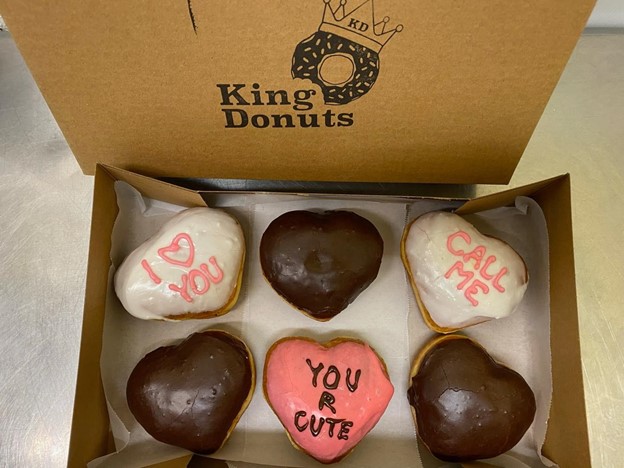 KD
King
Donuts
I ♡
YOU
CALL
ME
YOU
R
CUTE